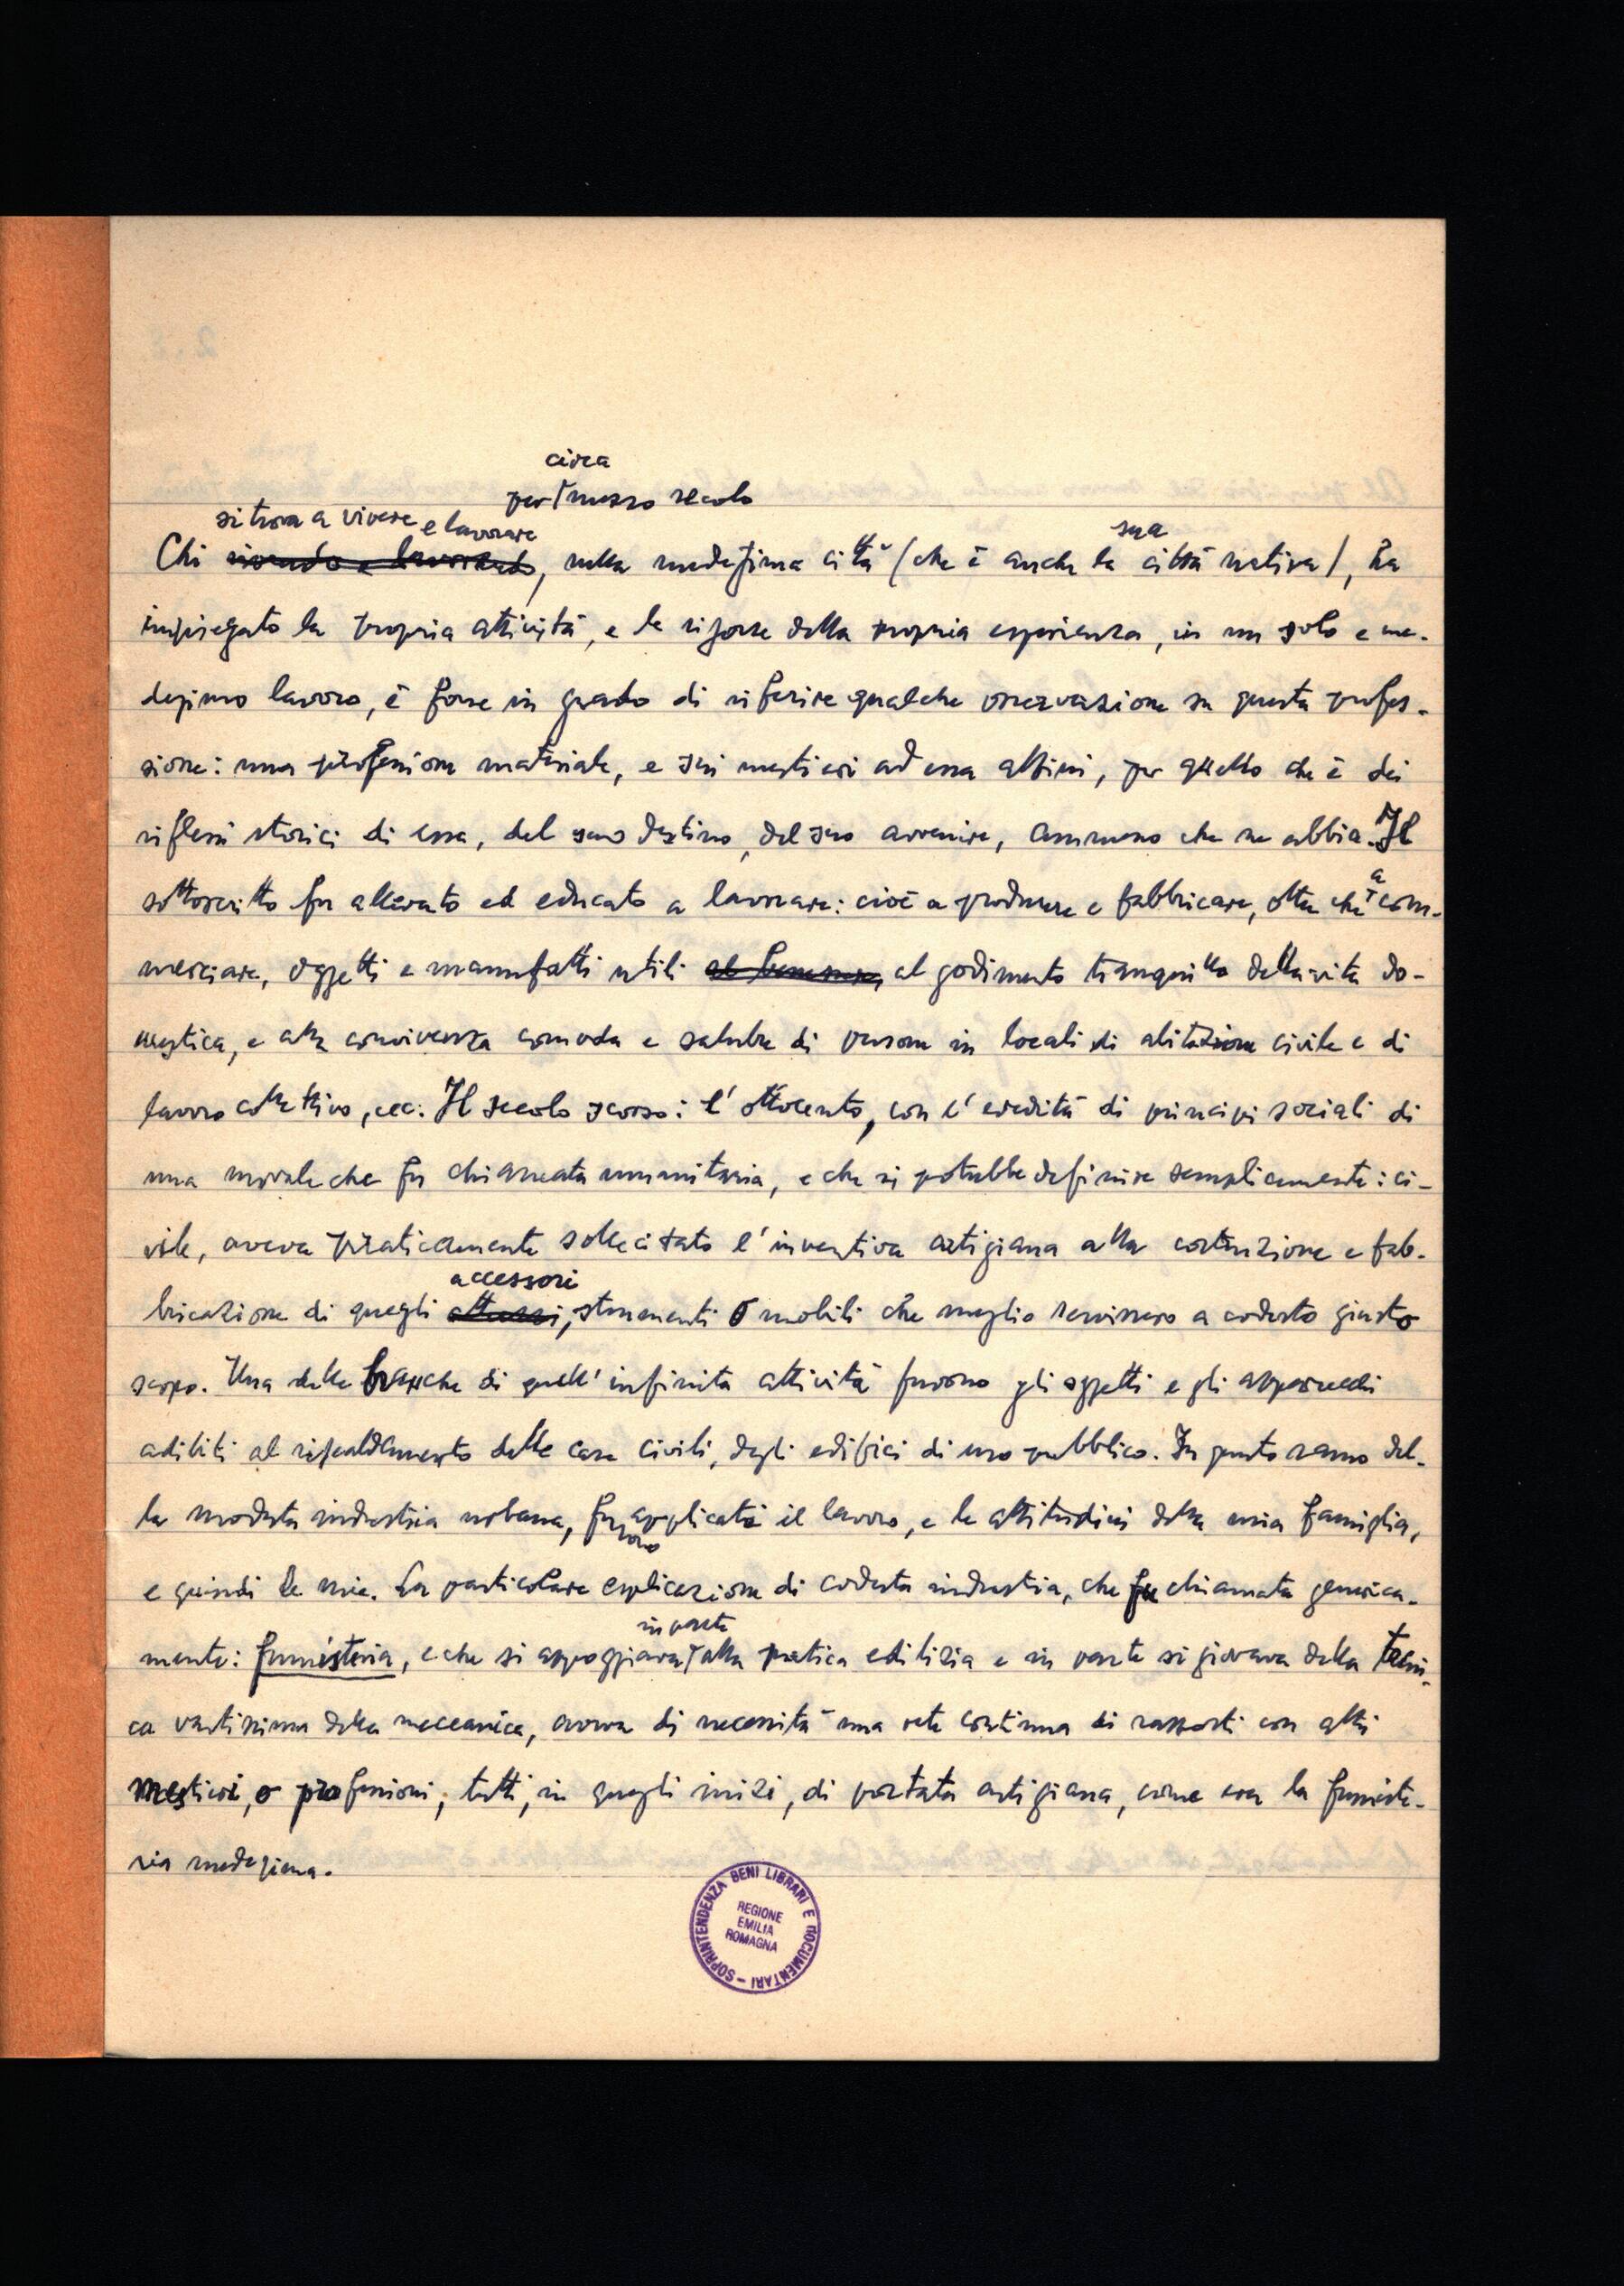 circa
per mezzo secolo
si trova a vivere e lavorare
sua
Chi vivendo e lavorando, nella medesima città (che è anche la città nativa), ha
impiegato la propria attività, e le risorse della propria esperienza, in un solo e me-
desimo lavoro, è forse in grado di riferire qualche osservazione su questa profes-
sione: una professione materiale, e sui mestieri ad essa affini, per quello che è dei
riflessi storici di essa, del suo destino, del suo avvenire, ammeno che ne abbia. Il
a
sottoscritto fu allevato ed educato a lavorare: cioè a produrre e fabbricare, oltre che com-
merciare, oggetti e manufatti utili al benessere, al godimento tranquillo della vita do-
mestica, e alla convivenza comoda e salubre di persone in locali di abitazione civile e di
lavoro collettivo, ecc. Il secolo scorso: l'ottocento, con l'eredità di principi sociali di
una morale che fu chiamata umanitaria, e che si potrebbe definire semplicemente: ci-
vile, aveva praticamente sollecitato l'inventiva artigiana alla costruzione e fab-
accessori
bricazione di quegli attrezzi, strumenti o mobili che meglio servissero a codesto giusto
scopo. Una delle branche di quell'infinita attività furono gli oggetti e gli apparecchi
adibiti al riscaldamento delle case civili, degli edifici di uso pubblico. In questo ramo del-
la modesta industria urbana, furono applicati il lavoro, e le attitudini della mia famiglia,
e quindi le mie. La particolare esplicazione di codesta industria, che fu chiamata generica-
in parte
mente: fumisteria, e che si appoggiava alla pratica edilizia e in parte si giovava della tecni-
ca vastissima della meccanica, aveva di necessità una rete continua di rapporti con altri
mestieri, o professioni, tutti, in quegli inizi, di portata artigiana, come era la fumiste-
ria medesima.
SOPRINTENDENZA BENI LIBRARI E DOCUMENTARI
REGIONE
EMILIA
ROMAGNA